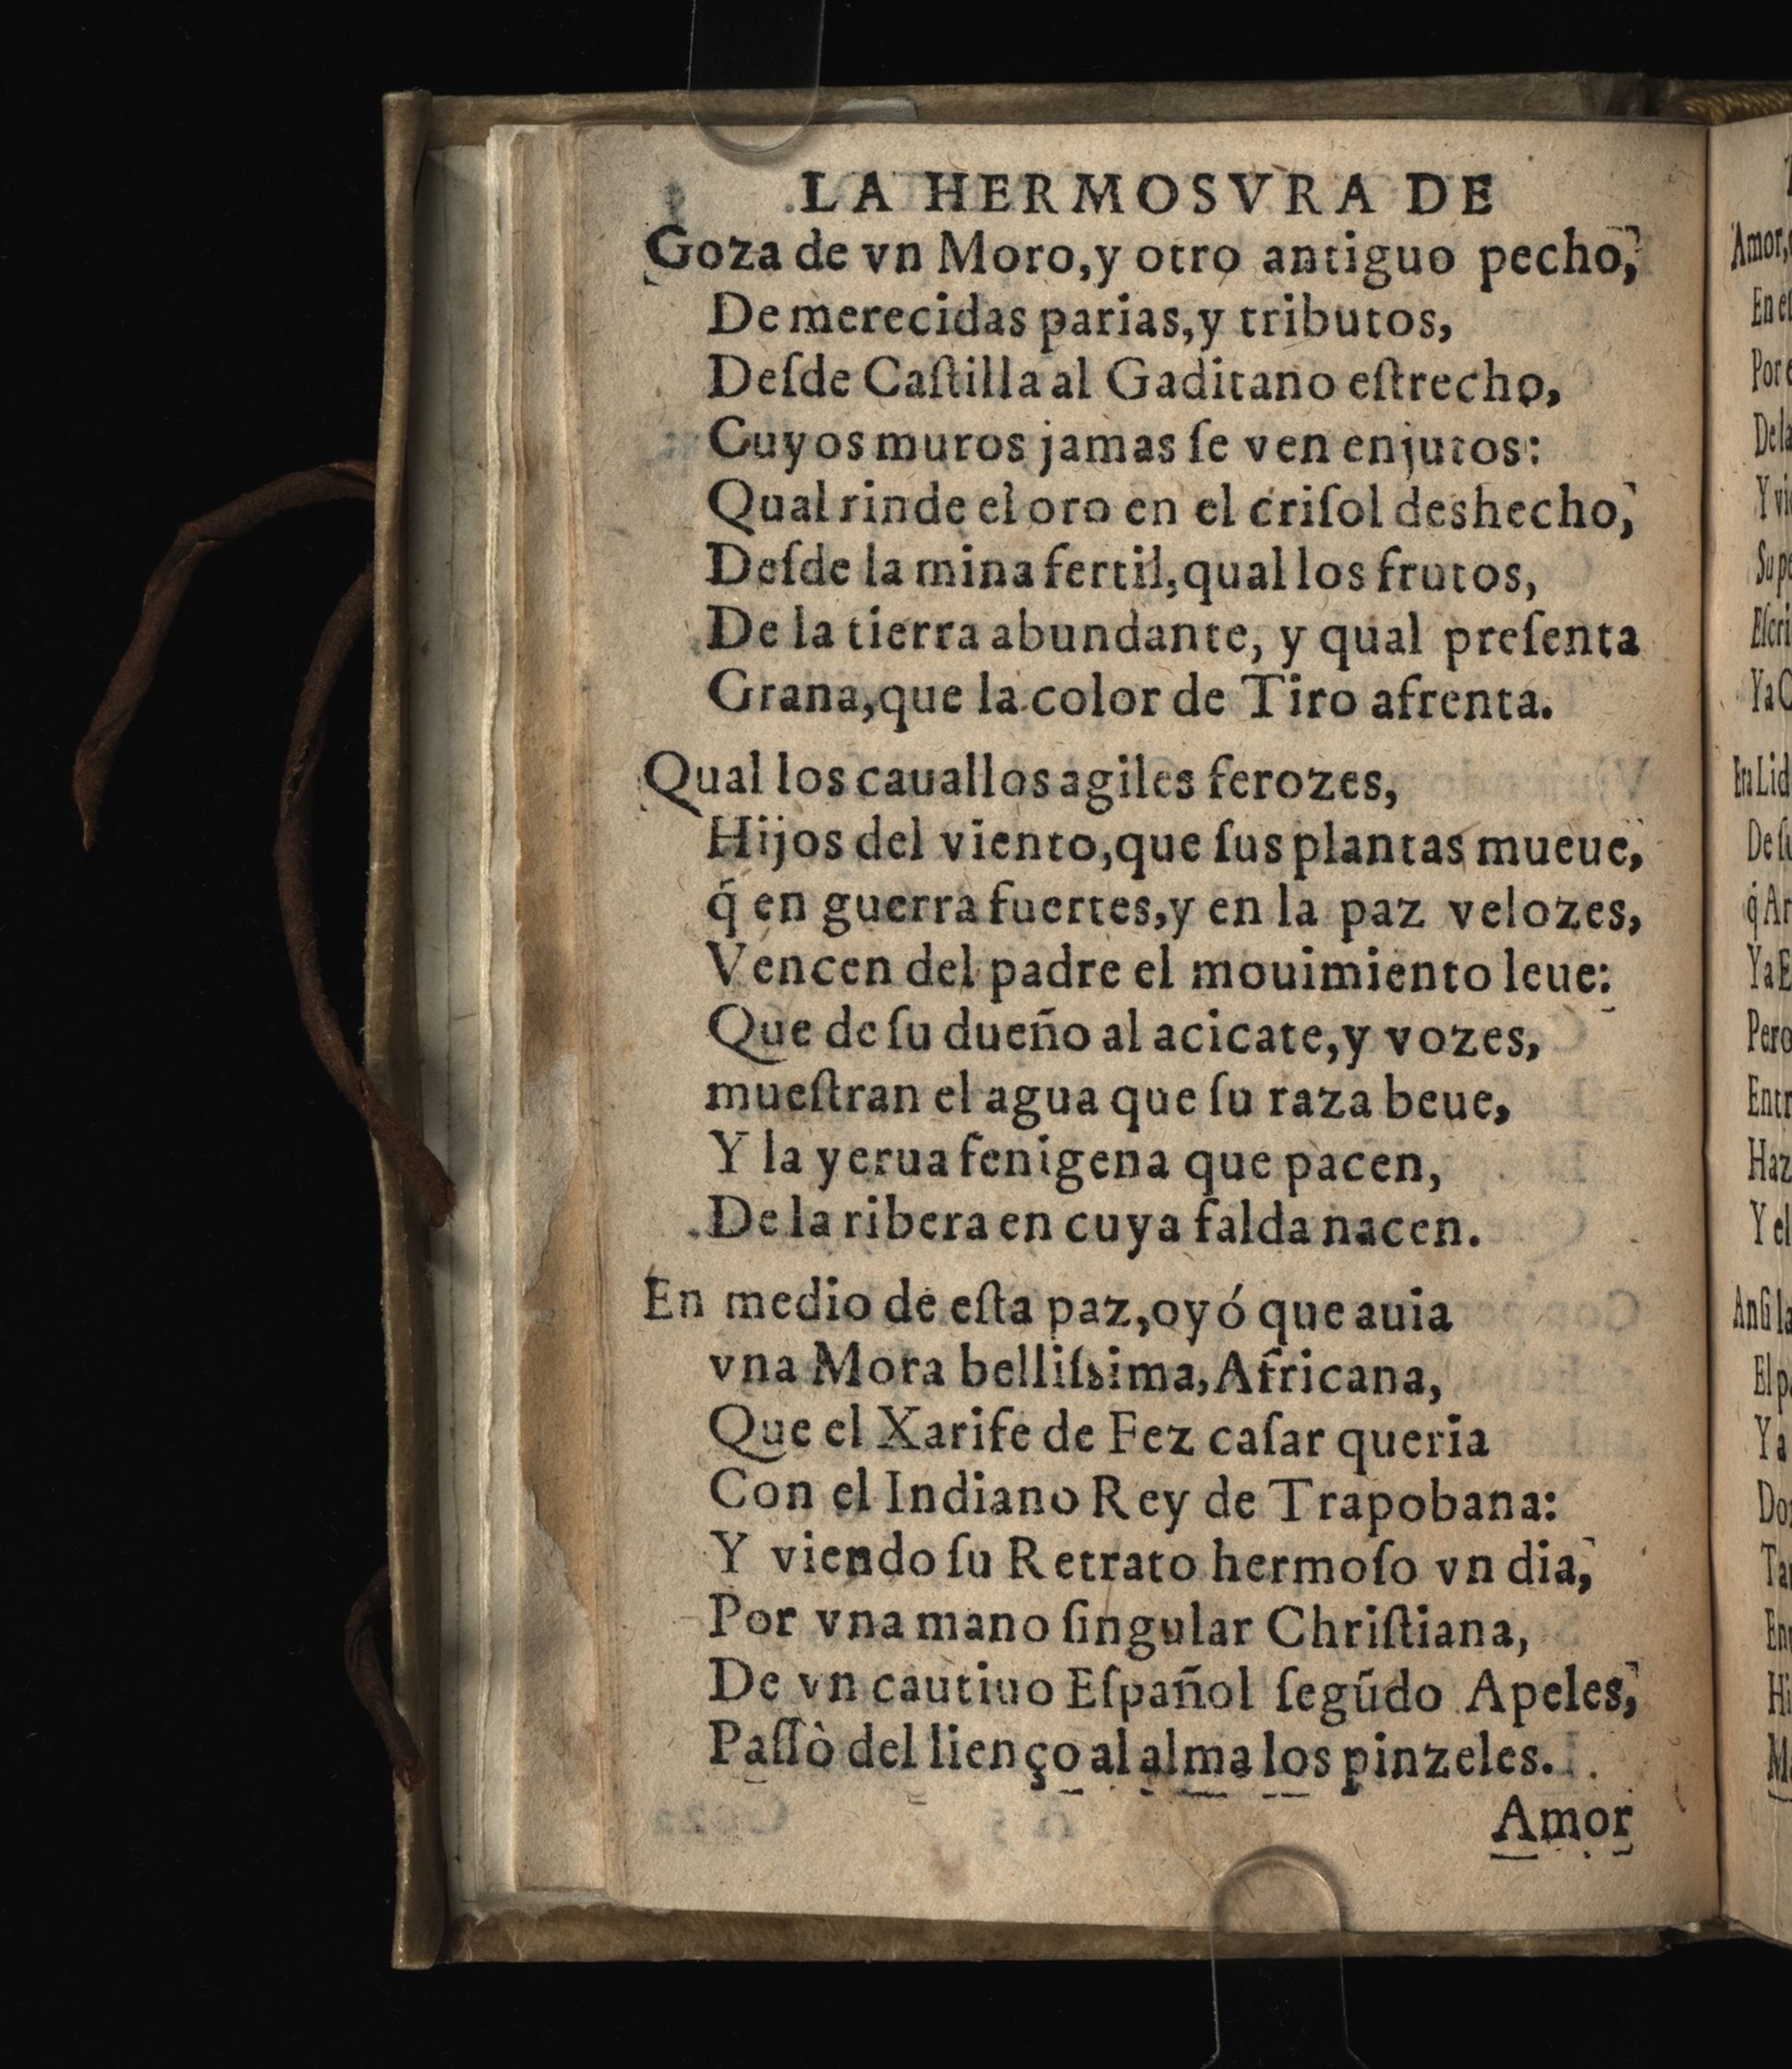 LA HERMOSVRA DE
Goza de vn Moro,y otro antiguo pecho,
De merecidas parias,y tributos,
Deſde Caſtilla al Gaditano eſtrecho,
Cuyos muros jamas ſe ven enjutos:
Qual rinde el oro en el criſol deshecho,
Deſde la mina fertil,qual los frutos,
De la tierra abundante, y qual preſenta
Grana,que la color de Tiro afrenta.
Qual los cauallos agiles ferozes,
Hijos del viento,que ſus plantas mueue,
q́ en guerra fuertes,y en la paz velozes,
Vencen del padre el mouimiento leue:
Que de ſu dueño al acicate,y vozes,
mueſtran el agua que ſu raza beue,
Y la yerua fenigena que pacen,
De la ribera en cuya falda nacen.
En medio de eſta paz,oyó que auia
vna Mora belliſsima,Africana,
Que el Xarife de Fez caſar queria
Con el Indiano Rey de Trapobana:
Y viendo ſu Retrato hermoſo vn dia,
Por vna mano ſingular Chriſtiana,
De vn cautiuo Eſpañol ſegũdo Apeles,
Paſſò del lienço al alma los pinzeles.
Amor
Amor,
Por
De la
Y
Ya
Era
De
q́
Ya
Pero
Y el
Anſi
El
Ya